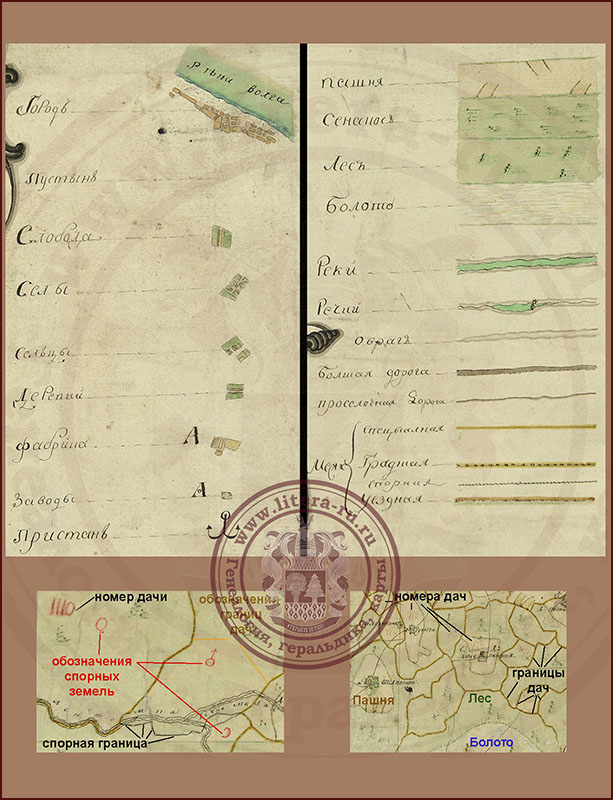 Городъ
рѣка волга
Пустынь
Слобода
Селы
Сельцы
Деревни
Фабрика А
Заводы А
Пристань
пашня
Сенокосъ
Лесъ
Болото
Реки
Речки
Оврагъ
большая дорога
проселочная дорога
Межи
спецыальная
Градская
спорная
Уездная
www.litera-ru.ru
Генеалогия, геральдика, карты
номер дачи
обозначения
границ
дач
обозначения
спорных
земель
спорная граница
номера дач
границы
дач
Пашня
Лес
Болото